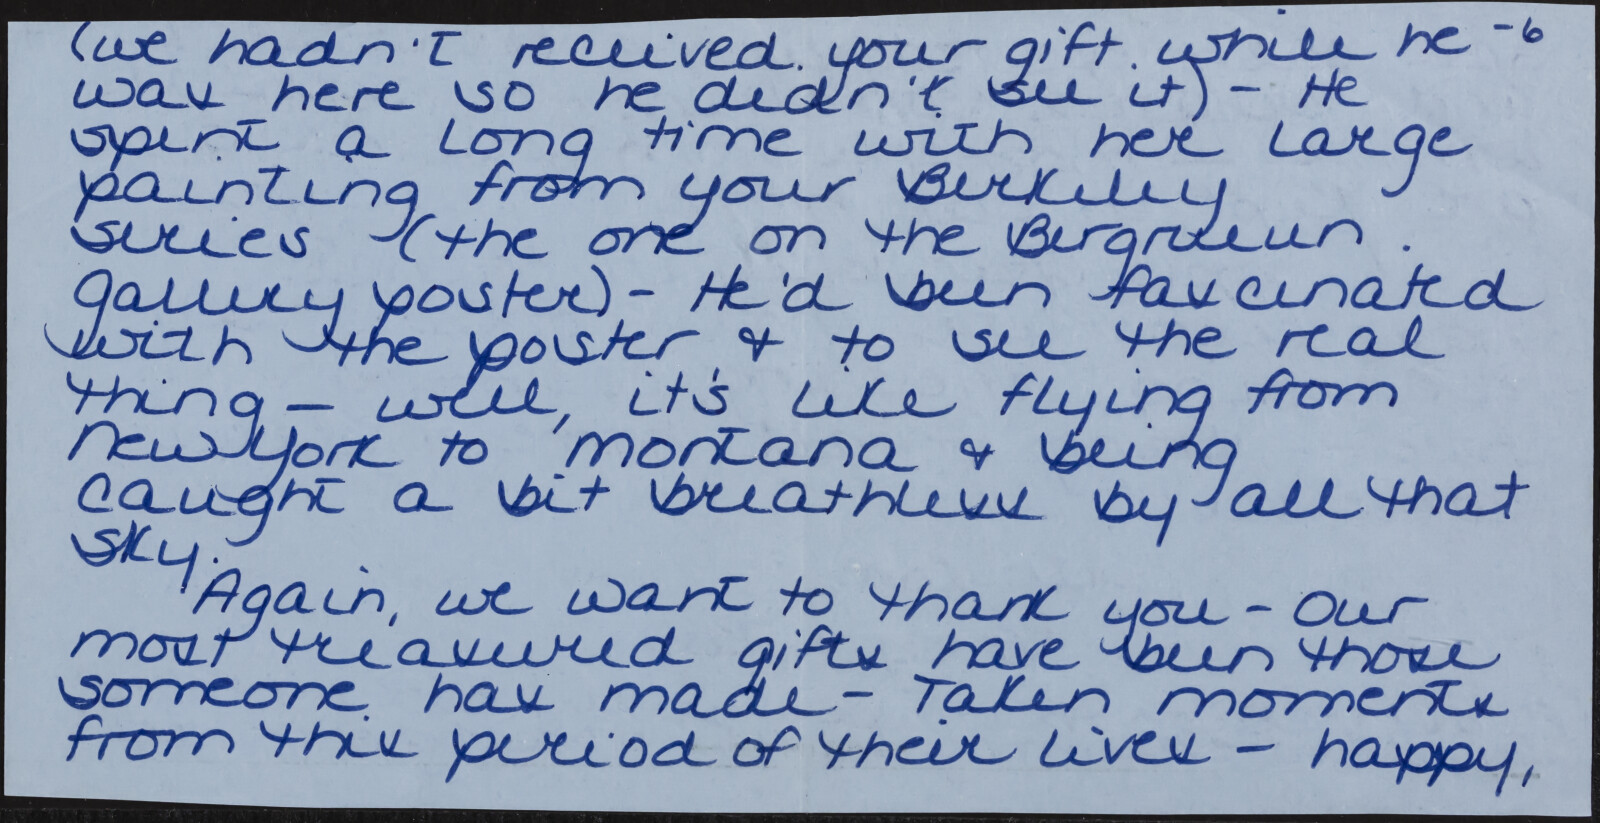 (we hadn't received your gift while he -6
was here so he didn't see it) - He
spent a long time with her large
painting from your Berkeley
series (the one on the Bergrueun
gallery poster) - He'd been fascinated
with the poster & to see the real
thing - well, it's like flying from
New York to Montana & being
caught a bit breathless by all that
sky.
Again, we want to thank you - Our
most treasured gifts have been those
someone has made - Taken moments
from this period of their lives - happy,